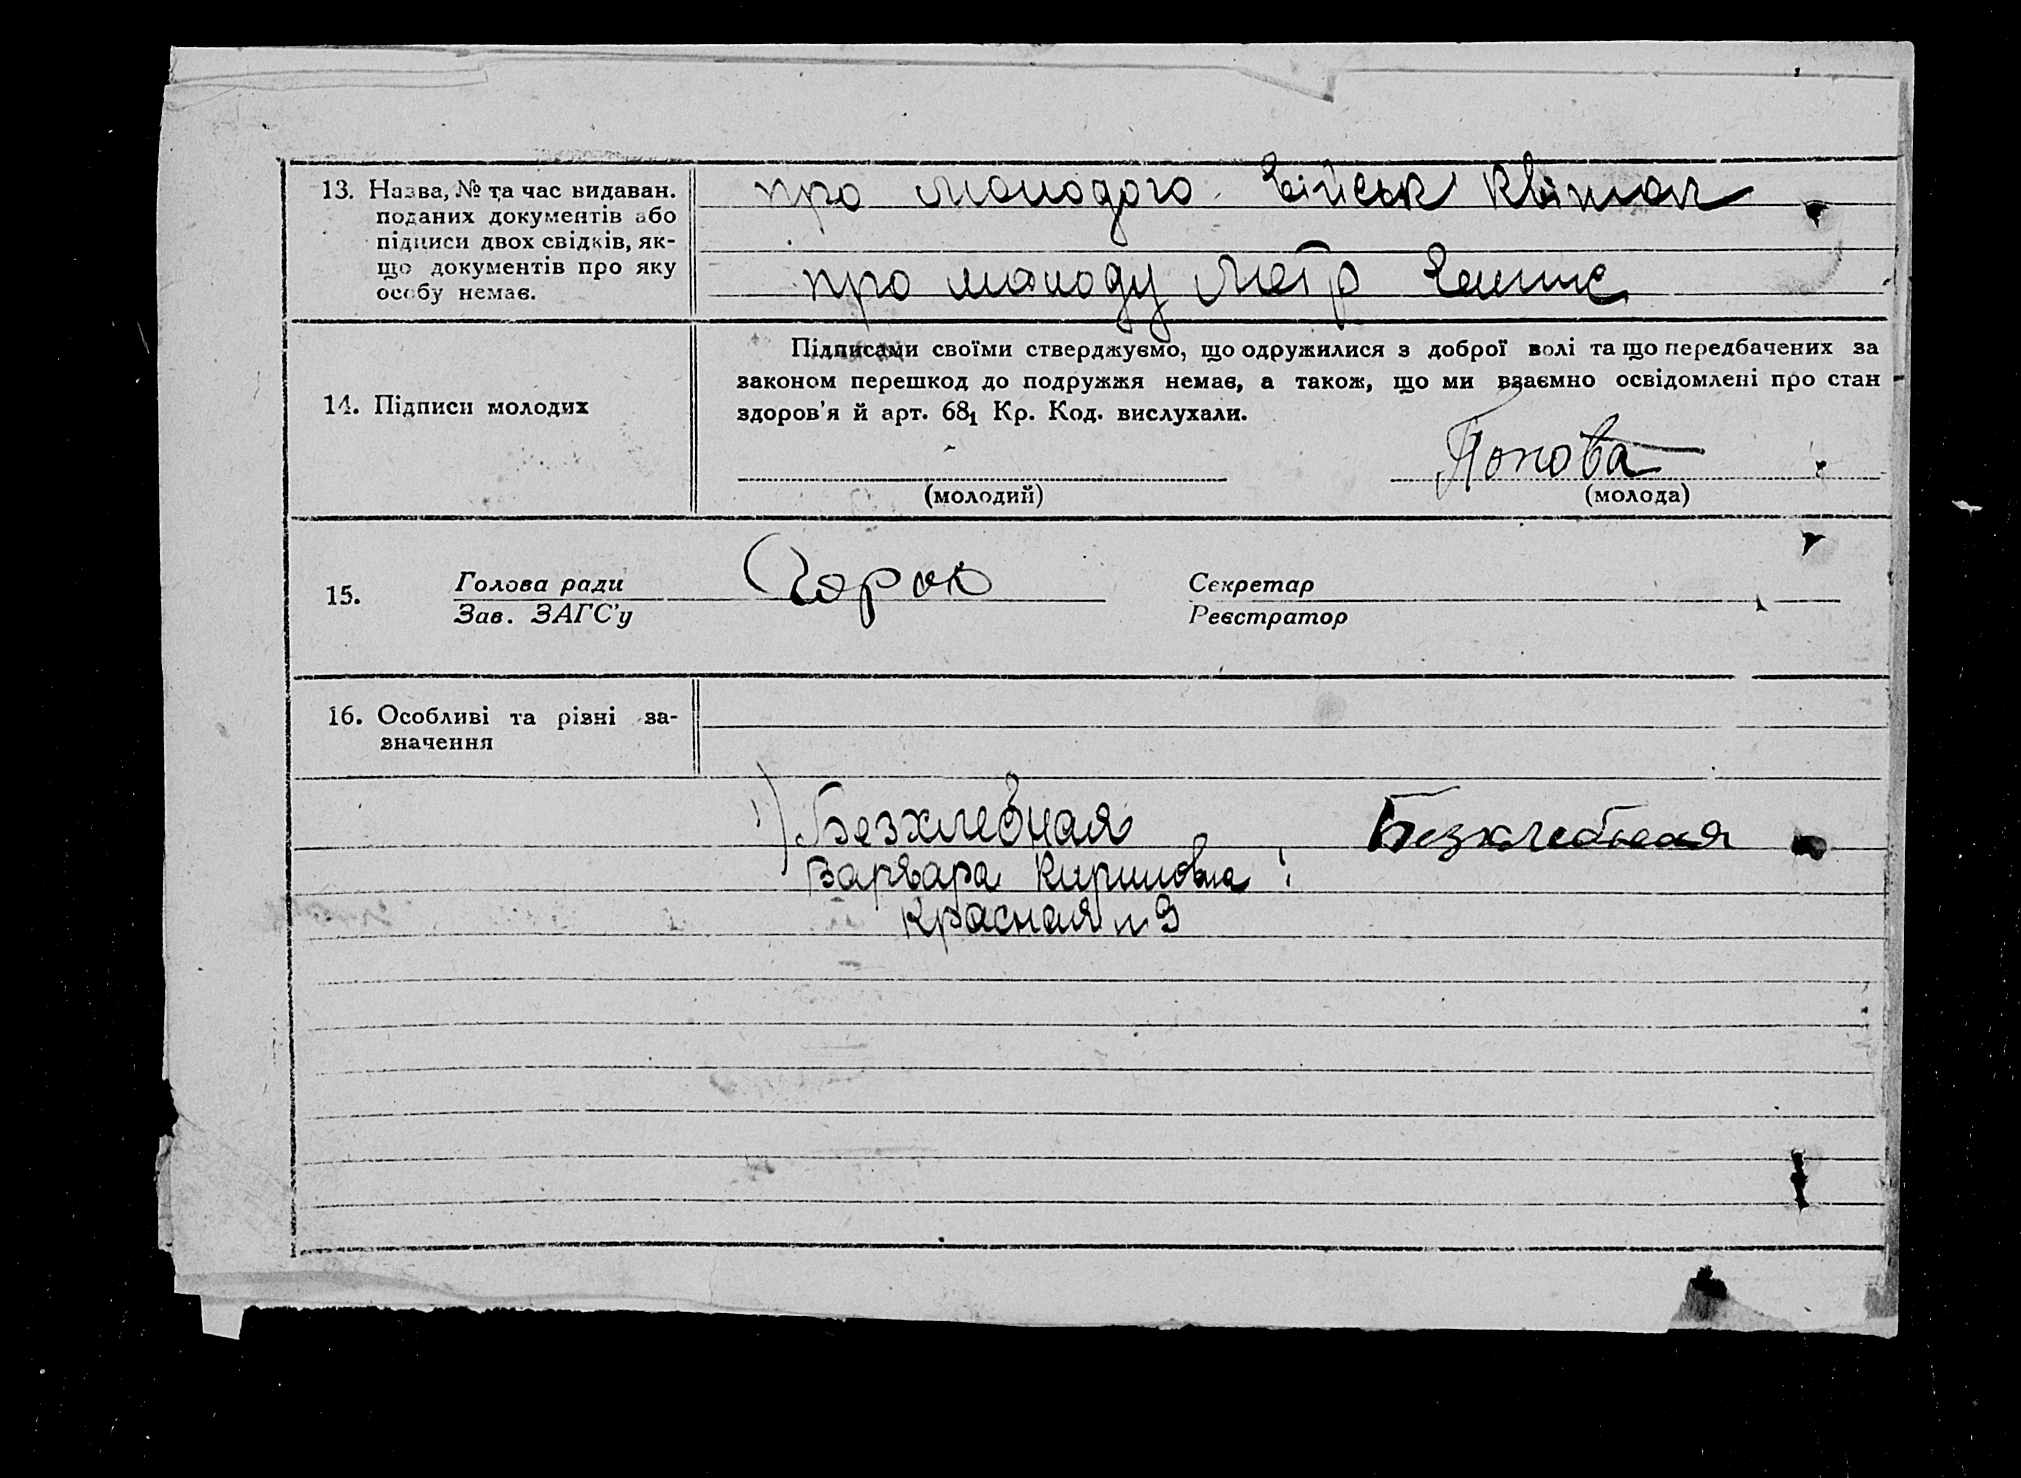 13. Назва, № та час видаван.
поданих документів або
підписи двох свідків, як-
що документів про яку
особу немає.
про молодого Військ Квіток
про молоду Метр
14. Підписи молодих
Підписами своїми стверджуємо, що одружилися з доброї волі та що передбачених за
законом перешкод до подружжя немає, а також, що ми взаємно освідомлені про стан
здоров'я й арт. 68₁ Кр. Код. вислухали.
Попова
(молодий) (молода)
15. Голова ради
Зав. ЗАГС'у
Секретар
Реєстратор
16. Особливі та різні за-
значення
1) Безхлебная Безхлебная
Варвара Кириловна
Красная № 9